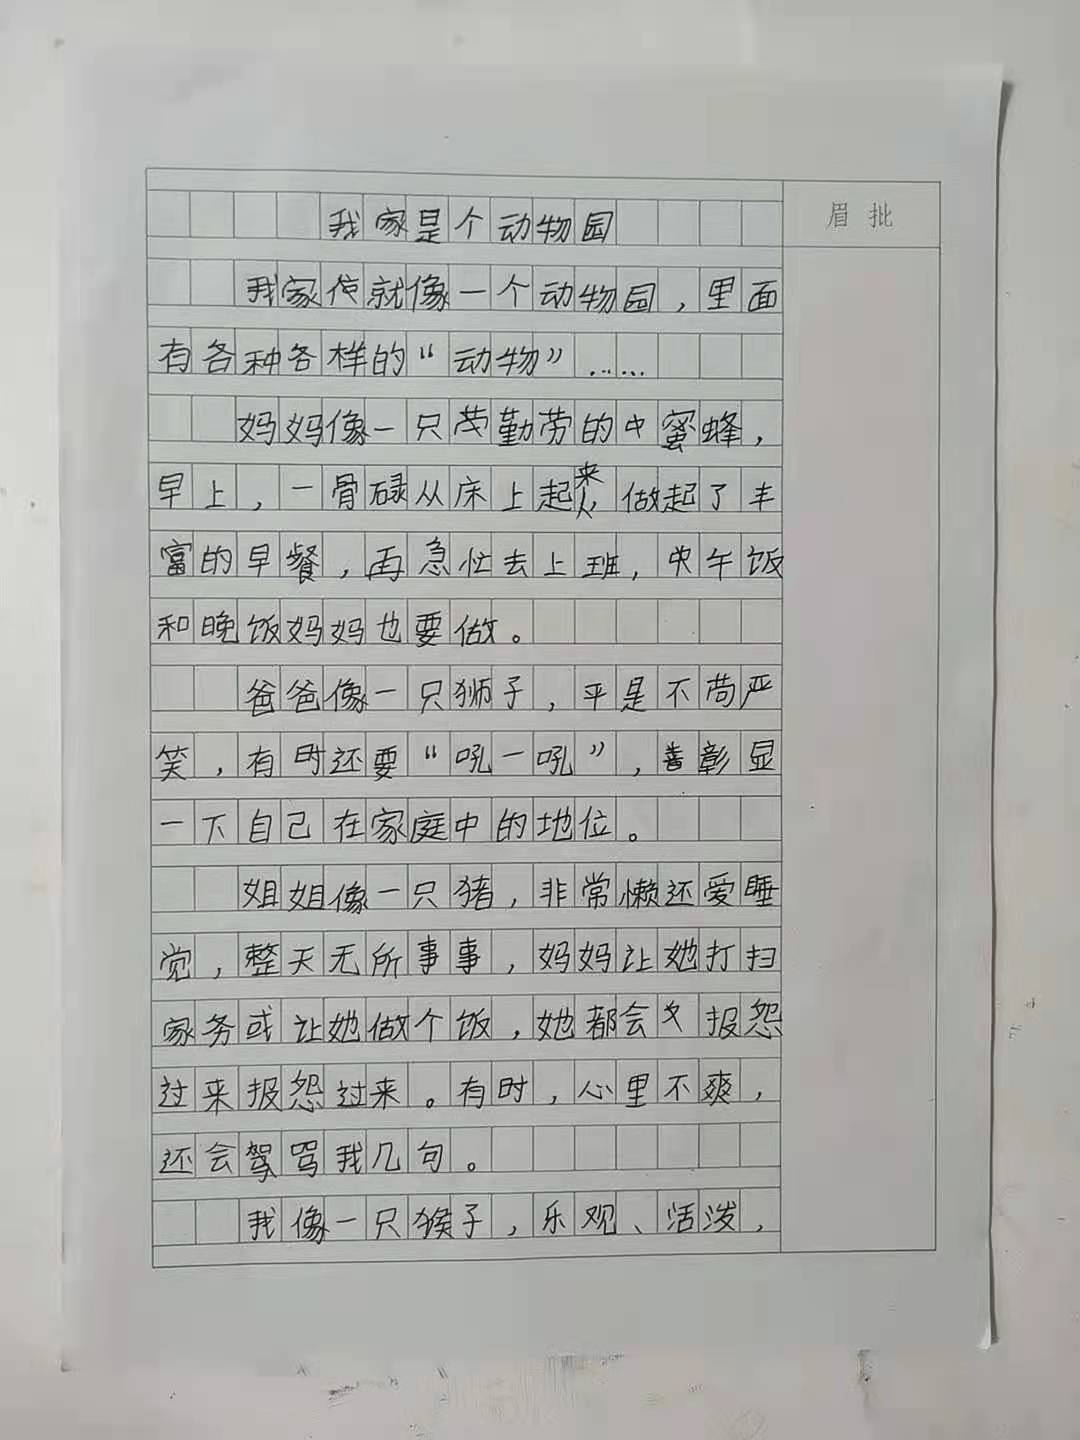 我家是个动物园
眉批
我家就像一个动物园，里面
有各种各样的“动物”……
妈妈像一只勤劳的中蜜蜂，
早上，一骨碌从床上起来，做起了丰
富的早餐，再急忙去上班，中午饭
和晚饭妈妈也要做。
爸爸像一只狮子，平是不苟严
笑，有时还要“吼一吼”，彰显
一下自己在家庭中的地位。
姐姐像一只猪，非常懒还爱睡
觉，整天无所事事，妈妈让她打扫
家务或让她做个饭，她都会报怨
过来报怨过来。有时，心里不爽，
还会骂我几句。
我像一只猴子，乐观、活泼，